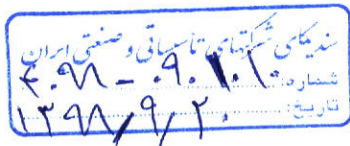 سندیکای شرکتهای تأسیساتی و صنعتی ایران
شماره:
تاریخ: ۱۳۹۸/۹/۲۰